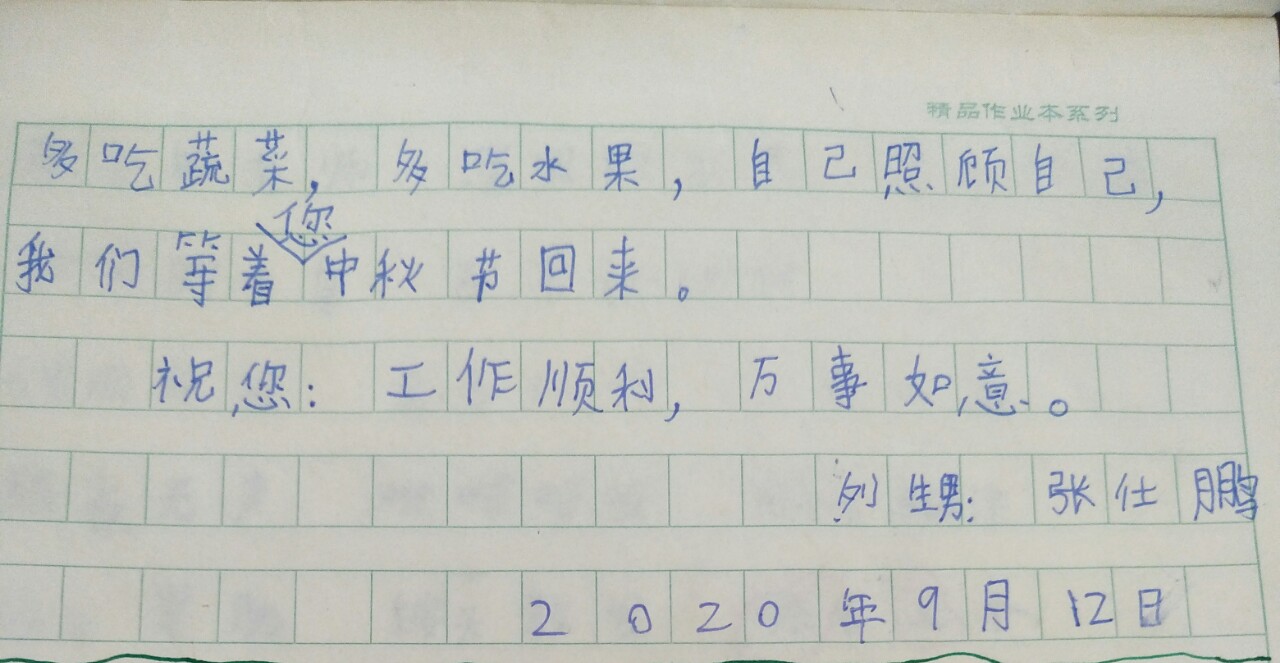 精品作业本系列
多吃蔬菜，多吃水果，自己照顾自己，
我们等着您中秋节回来。
祝您：工作顺利，万事如意。
外甥：张仕鹏
2020年9月12日